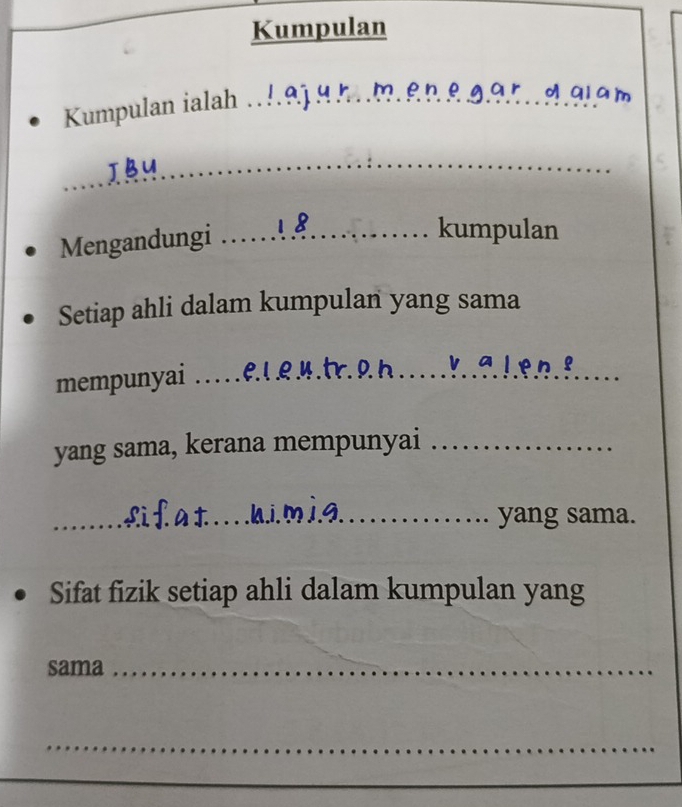 Kumpulan
• Kumpulan ialah ..lajur menegar dalam
JBU
• Mengandungi ......18............ kumpulan
• Setiap ahli dalam kumpulan yang sama
mempunyai .....eleutron.....valens.....
yang sama, kerana mempunyai ..................
.......sifat.....himia.............. yang sama.
• Sifat fizik setiap ahli dalam kumpulan yang
sama ......................................................
............................................................